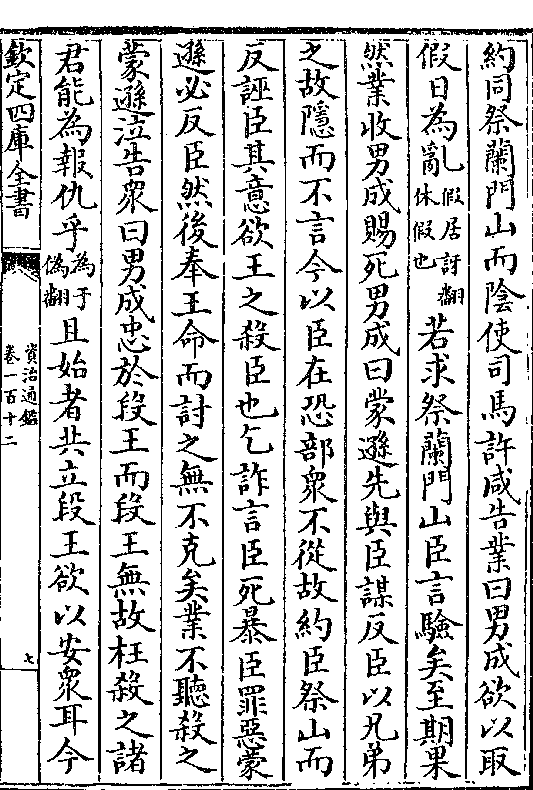 約同祭蘭門山而陰使司馬許咸告業曰男成欲以取
假日為亂假居訝翻休假也若求祭蘭門山臣言驗矣至期果
然業收男成賜死男成曰蒙遜先與臣謀反臣以兄弟
之故隱而不言今以臣在恐部衆不從故約臣祭山而
反誣臣其意欲王之殺臣也乞詐言臣死暴臣罪惡蒙
遜必反臣然後奉王命而討之無不克矣業不聽殺之
蒙遜泣告衆曰男成忠於段王而段王無故枉殺之諸
君能為報仇乎為于偽翻且始者共立段王欲以安衆耳今
欽定四庫全書
資治通鑑
卷一百十二
七